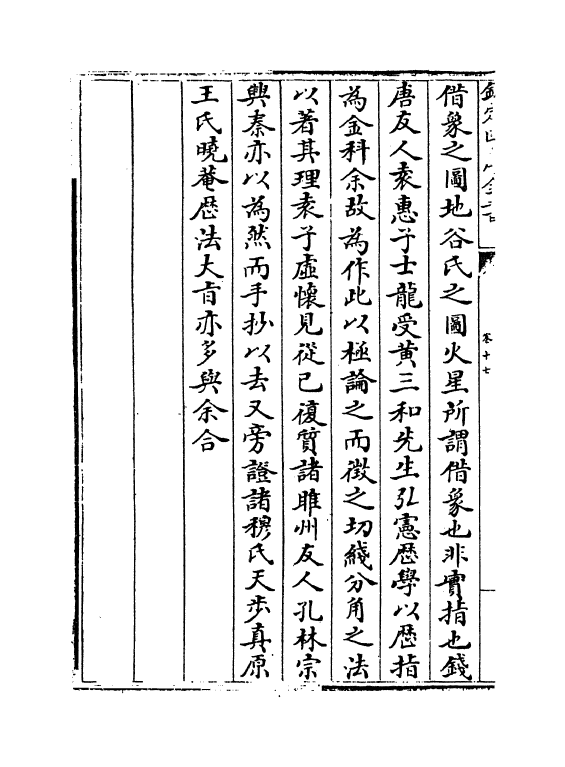 卷十七
借象之圖地谷氏之圖火星所謂借象也非實指也錢
唐友人袁惠子士龍受黃三和先生弘憲歴學以歴指
為金科余故為作此以極論之而徴之切綫分角之法
以著其理袁子虛懷見從已復質諸睢州友人孔林宗
興秦亦以為然而手抄以去又旁證諸穆氏天步真原
王氏曉菴歴法大㫖亦多與余合